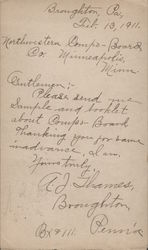 Broughton, Pa,
Feb. 13, 1911.
Northwestern Comp-Board
Co. Minneapolis,
Minn
Gentlemen:-
Please send me
Sample and booklet
about Comp-Board
Thanking you for same
in advance, I am,
Yours truly,
A J Thomas,
Broughton
Bx 111. Penn'a